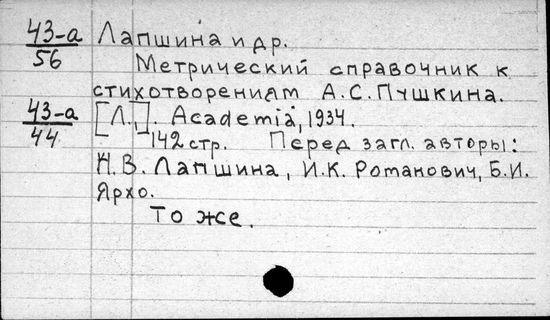 43-а Лапшина и др.
56
Метрический справочник к
стихотворениям А.С.Пушкина.
43-а [Л.], Academia, 1934.
44
142 стр. Перед загл. авторы:
Н.В. Лапшина, И.К. Романович, Б.И.
Ярхо.
То же.